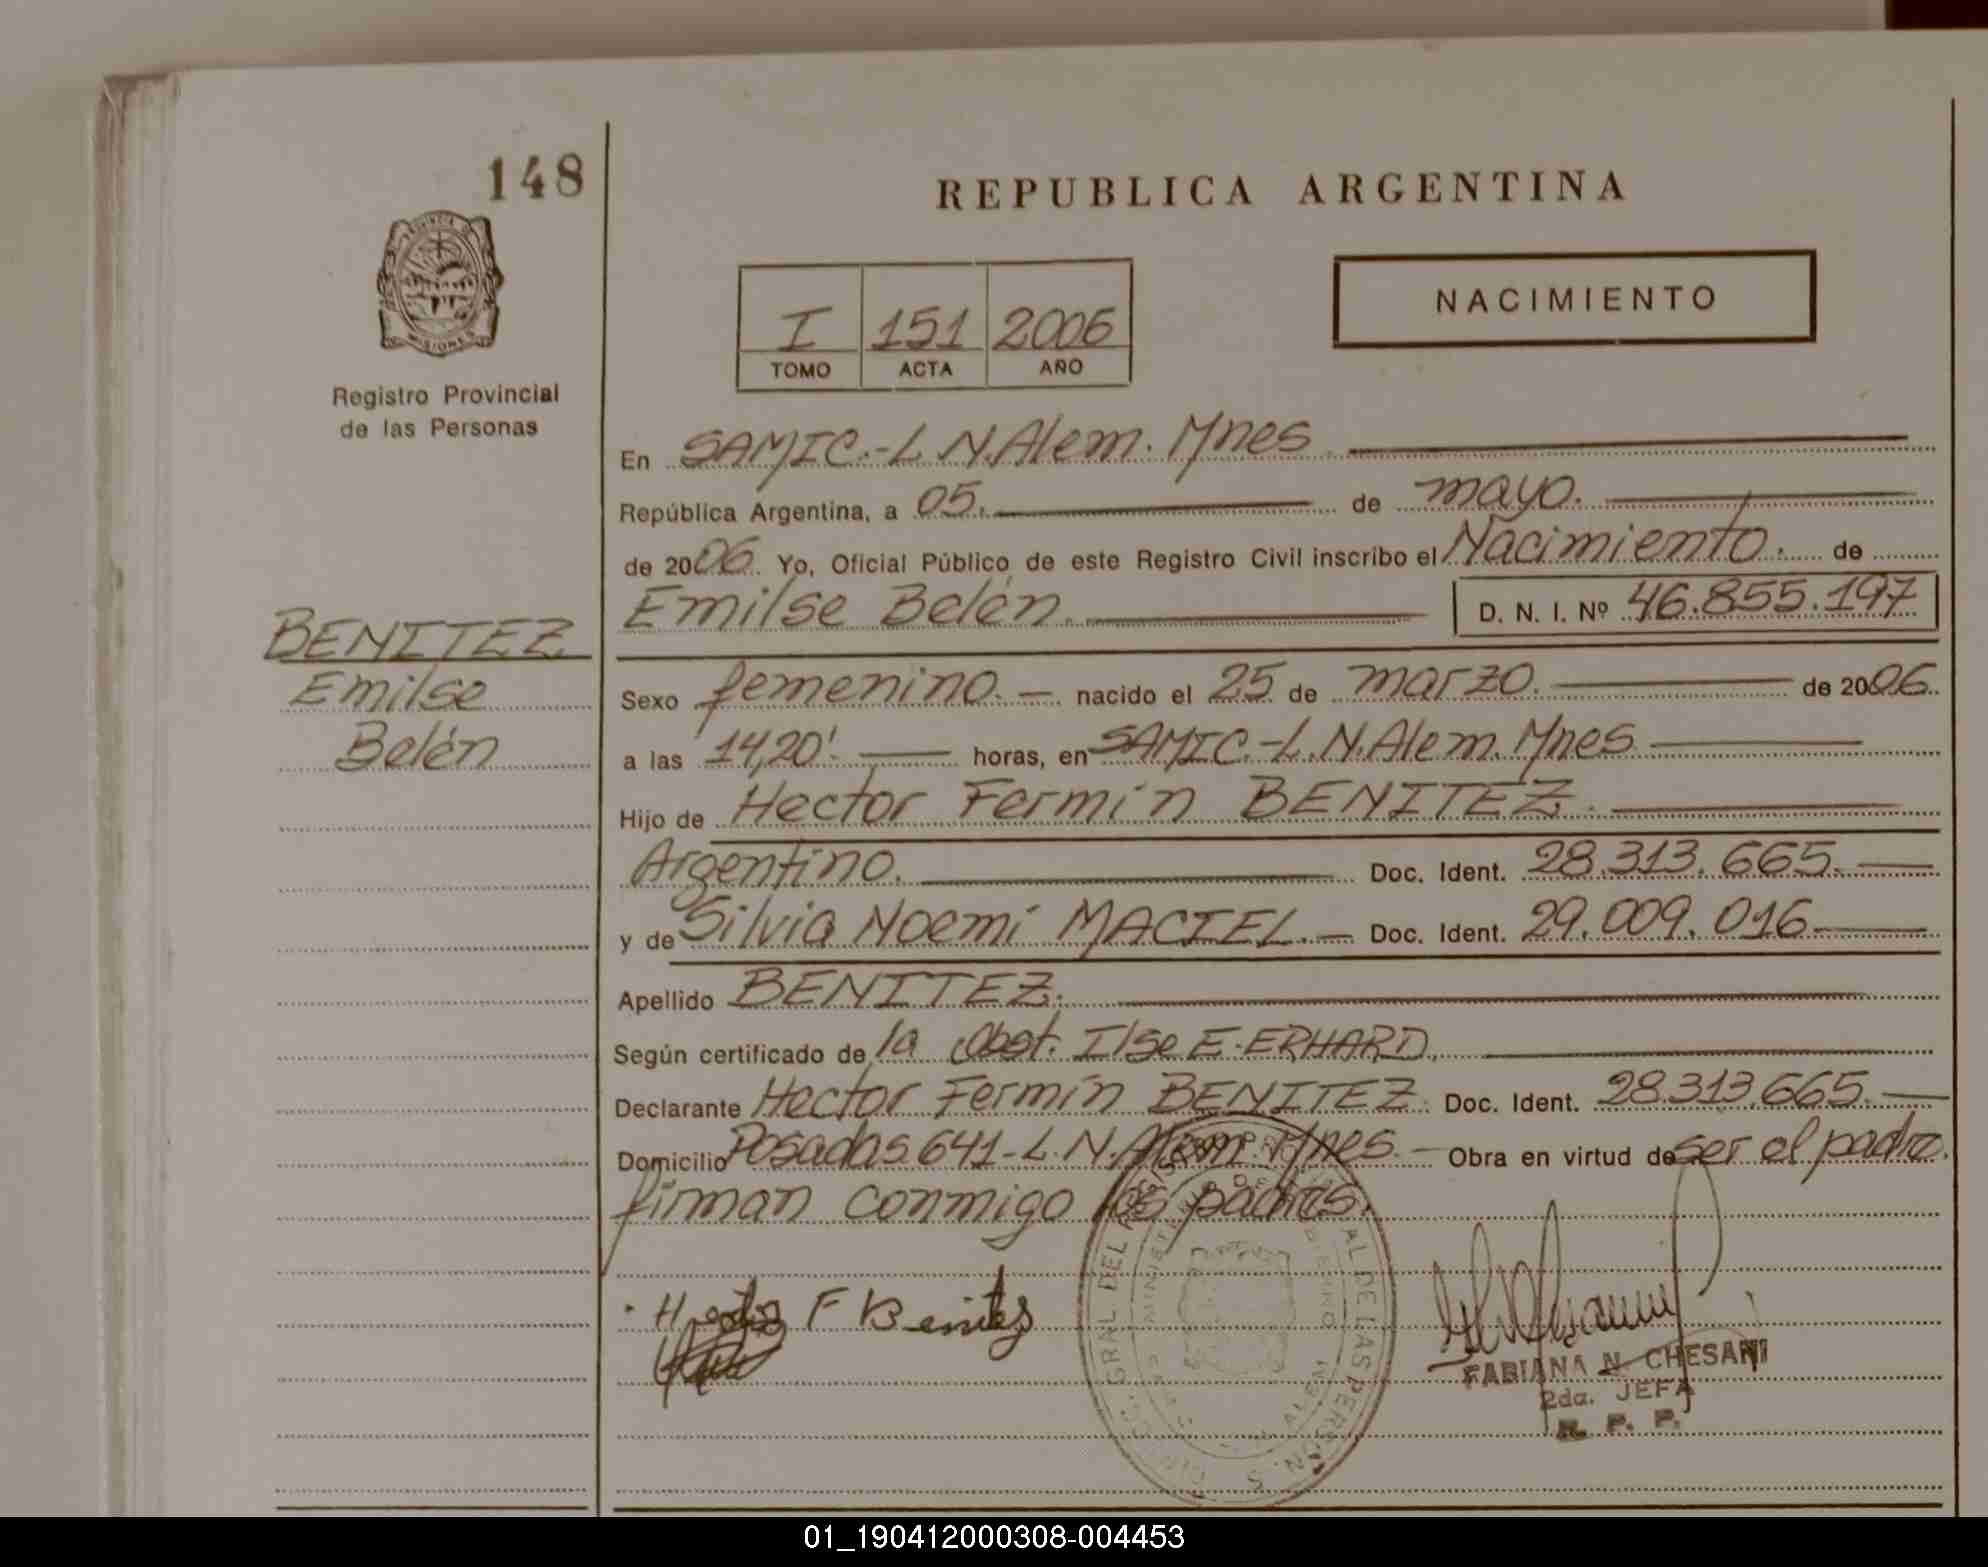 148
REPUBLICA ARGENTINA
PROVINCIA DE
MISIONES
Registro Provincial
de las Personas
NACIMIENTO
I 151 2006
TOMO ACTA AÑO
En SAMIC.-L.N.Alem. Mnes
República Argentina, a 05. de mayo.
de 2006. Yo, Oficial Público de este Registro Civil inscribo el Nacimiento. de
Emilse Belén. D. N. I. Nº 46.855.197
BENITEZ
Emilse
Belén
Sexo femenino. — nacido el 25 de marzo. de 2006.
a las 14,20'. horas, en SAMIC.-L.N.Alem. Mnes
Hijo de Hector Fermín BENITEZ.
Argentino. Doc. Ident. 28.313.665.
y de Silvia Noemí MACIEL. — Doc. Ident. 29.009.016
Apellido BENITEZ.
Según certificado de la Obst. Ilse E. ERHARD.
Declarante Hector Fermín BENITEZ. Doc. Ident. 28.313.665.
Domicilio Posadas 641-L.N.Alem Mnes. — Obra en virtud de ser el padre.
firman conmigo los padres.
F Benites
GRAL DEL REGISTRO PROVINCIAL DE LAS PERSONAS
FABIANA N. CHESANI
2da. JEFA
R. P. P.
01_190412000308-004453